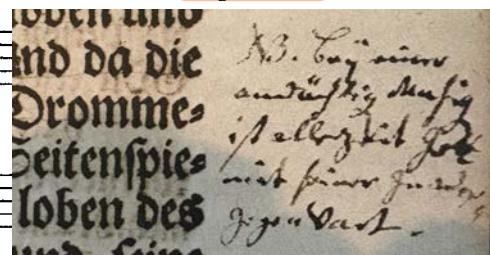 loben und
und da die
Dromme⸗
Seitenspie⸗
loben des
und seine
NB. Bey einer
andächtig Musig
ist allezeit Gott
mit seiner Gnaden
Gegenwart.